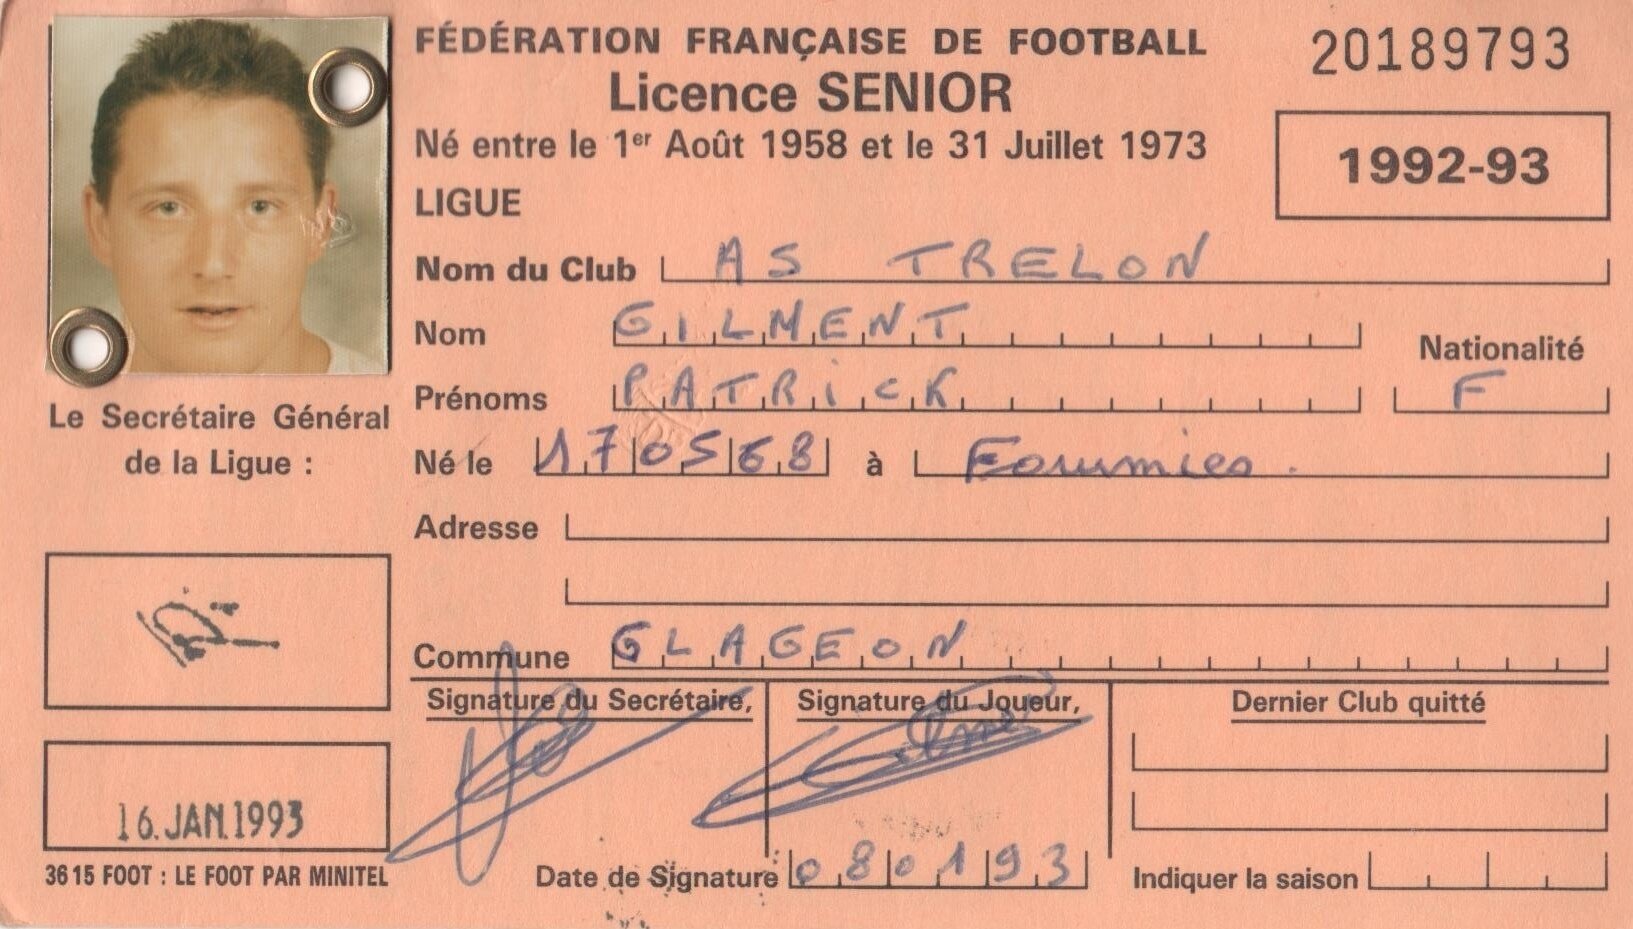 FÉDÉRATION FRANÇAISE DE FOOTBALL
20189793
Licence SENIOR
Né entre le 1er Août 1958 et le 31 Juillet 1973
1992-93
LIGUE
Nom du Club AS TRELON
Nom GILMENT
Nationalité
Prénoms PATRiCK
F
Le Secrétaire Général
de la Ligue :
Né le 170568 à Fourmies.
Adresse
Commune GLAGEON
Signature du Secrétaire,
Signature du Joueur,
Dernier Club quitté
16. JAN. 1993
3615 FOOT : LE FOOT PAR MINITEL
Date de Signature 080193
Indiquer la saison